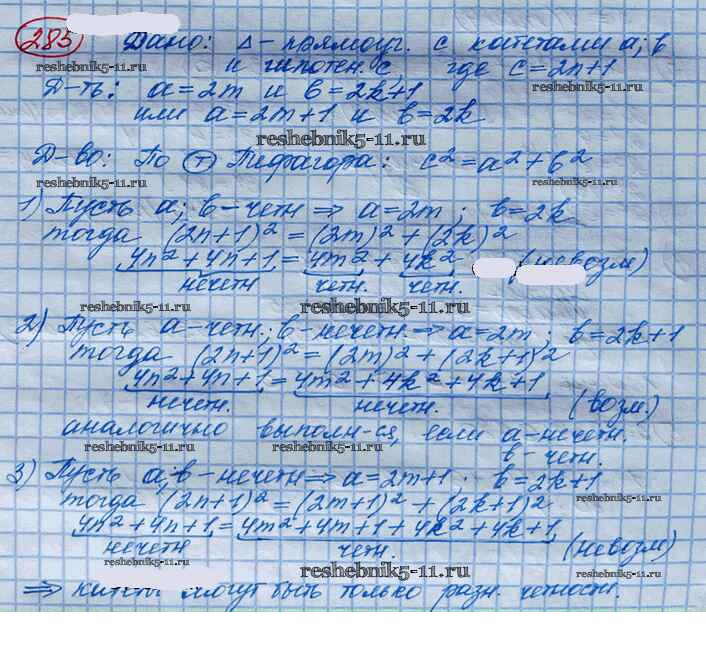 285 Дано: Δ-прямоуг. с катетами a; b
reshebnik5-11.ru и гипотен. c, где c=2n+1
Д-ть: a=2m и b=2k+1 reshebnik5-11.ru
или a=2m+1 и b=2k
reshebnik5-11.ru
Д-во: По Т Пифагора: c²=a²+b²
reshebnik5-11.ru
1) Пусть a; b-четн ⇒ a=2m; b=2k
тогда (2n+1)²=(2m)²+(2k)²
4n²+4n+1=4m²+4k² (невозм)
нечетн четн. четн.
reshebnik5-11.ru reshebnik5-11.ru
2) Пусть a-четн.; b-нечетн. ⇒ a=2m; b=2k+1
тогда (2n+1)²=(2m)²+(2k+1)²
4n²+4n+1=4m²+4k²+4k+1
нечетн. нечетн. (возм.)
аналогично выполн-ся, если a-нечетн.
reshebnik5-11.ru reshebnik5-11.ru b-четн.
3) Пусть a; b-нечетн ⇒ a=2m+1; b=2k+1
тогда (2n+1)²=(2m+1)²+(2k+1)² reshebnik5-11.ru
4n²+4n+1=4m²+4m+1+4k²+4k+1
нечетн четн. (невозм)
reshebnik5-11.ru reshebnik5-11.ru reshebnik5-11.ru
⇒ катеты могут быть только разн. четности.